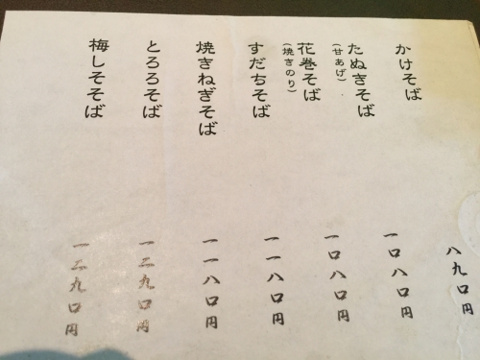 かけそば
八九〇円
たぬきそば
(甘あげ)
一〇八〇円
花巻そば
(焼きのり)
一〇八〇円
すだちそば
一一八〇円
焼きねぎそば
一一八〇円
とろろそば
一二九〇円
梅しそそば
一二九〇円